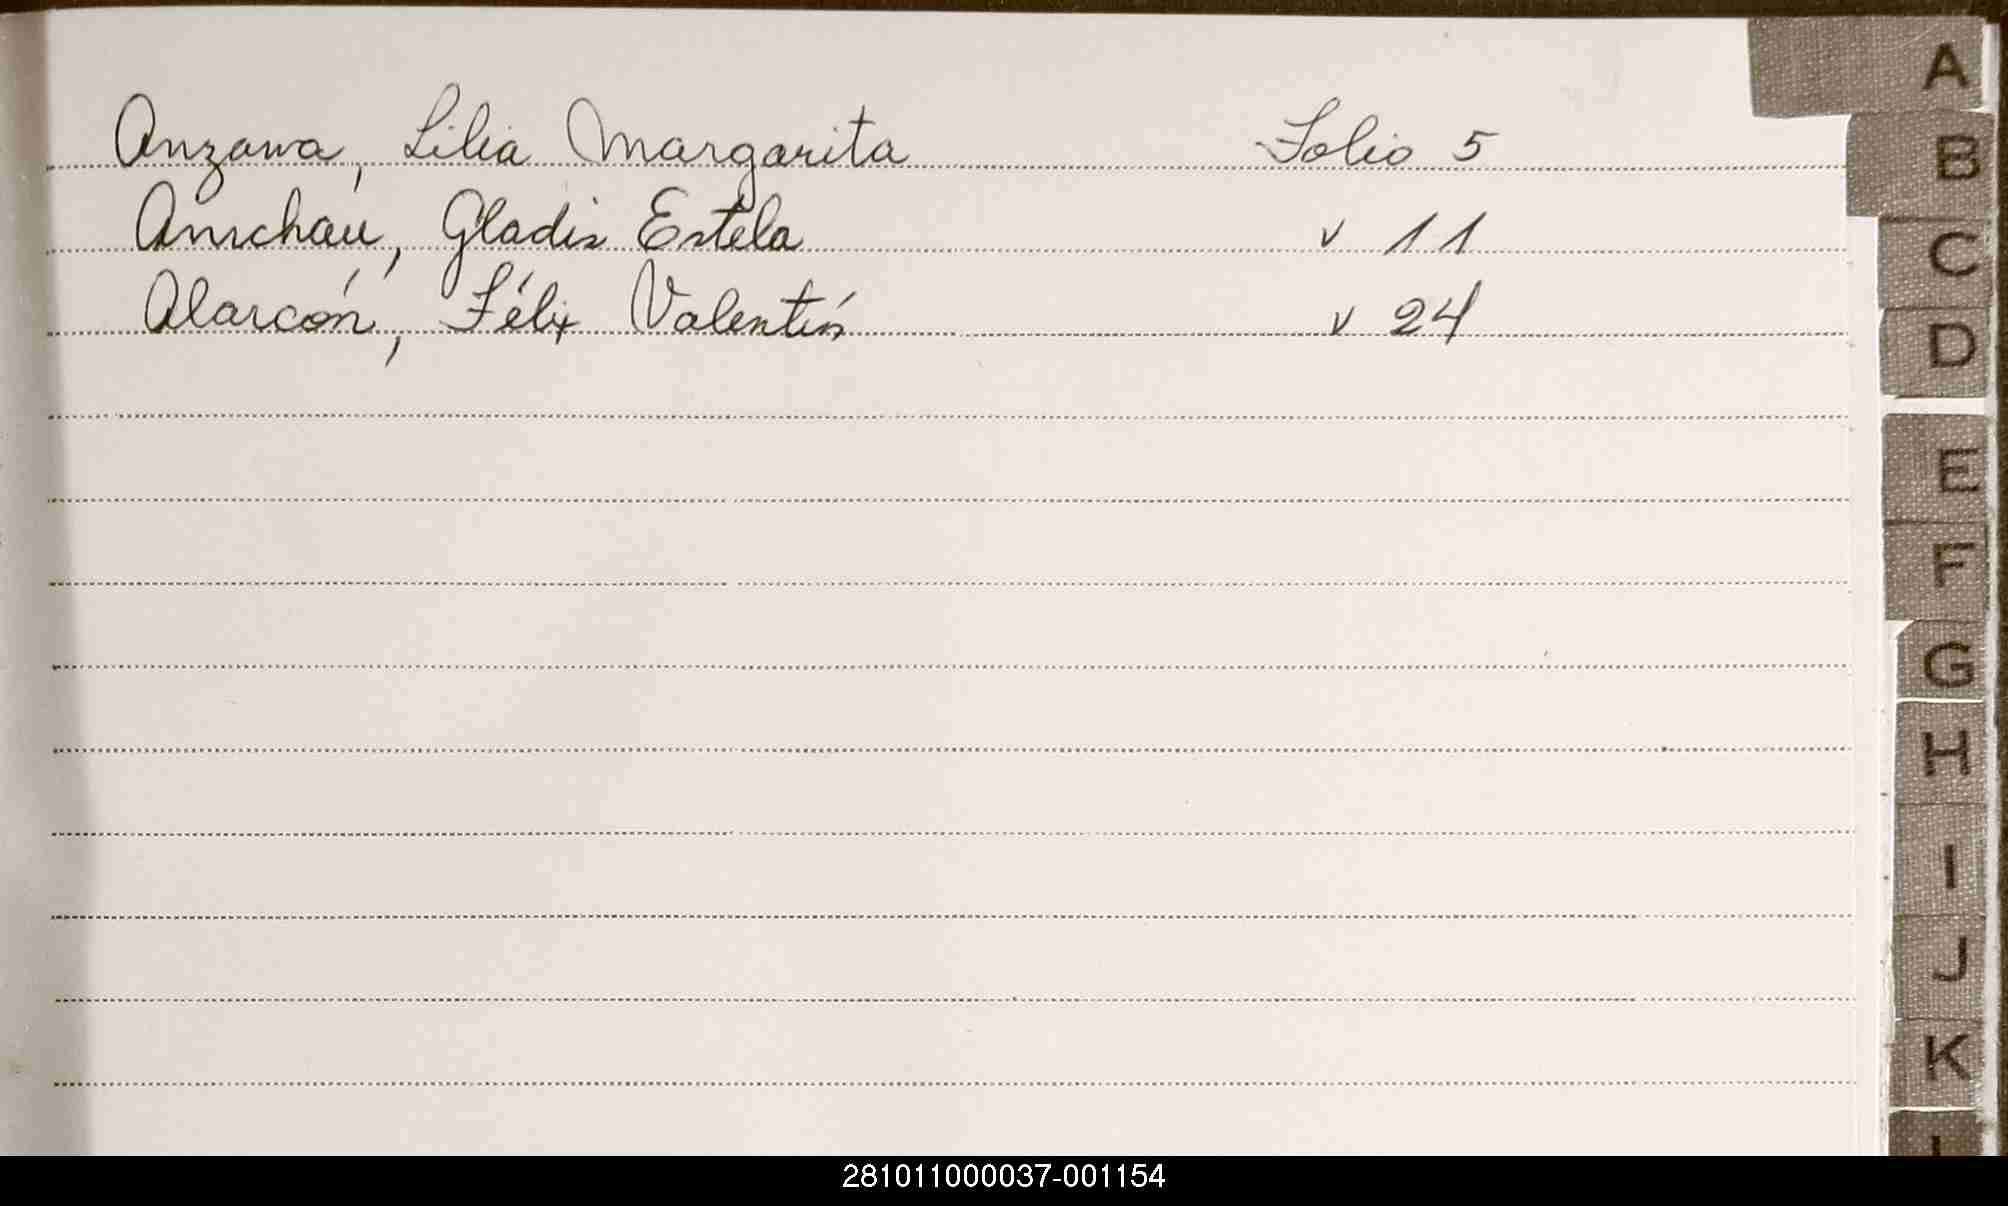 Anzawa, Lilia Margarita Folio 5
Gladis Estela v 11
Alarcón, Félix Valentín v 24
A
B
C
D
E
F
G
H
I
J
K
281011000037-001154